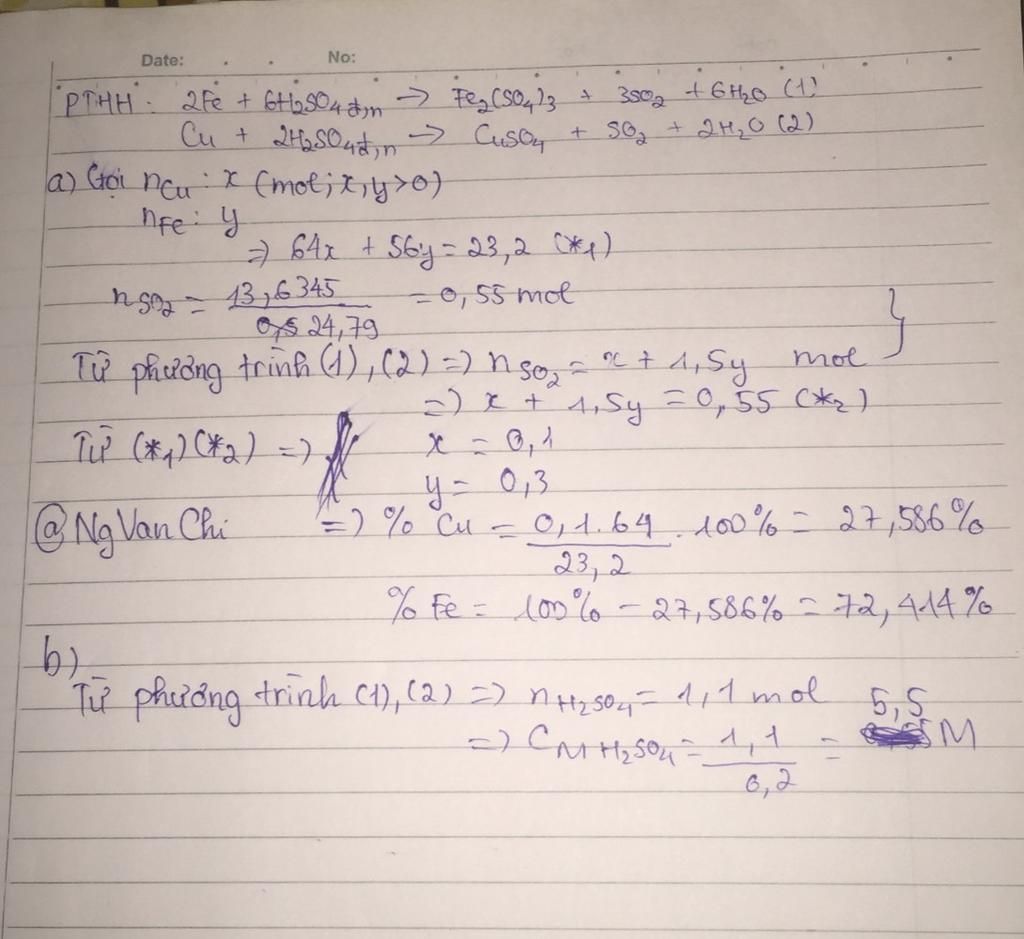 Date: . . No:
PTHH: 2Fe + 6H₂SO₄ đ,n → Fe₂(SO₄)₃ + 3SO₂ + 6H₂O (1)
Cu + 2H₂SO₄ đ,n → CuSO₄ + SO₂ + 2H₂O (2)
a) Gọi nCu : x (mol; x, y > 0)
nFe : y
=> 64x + 56y = 23,2 (*1)
nSO₂ = 13,6345 / 24,79 = 0,55 mol
Từ phương trình (1), (2) => nSO₂ = x + 1,5y mol }
=> x + 1,5y = 0,55 (*2)
Từ (*1) (*2) => x = 0,1
y = 0,3
@Ng Van Chi => % Cu = 0,1.64 / 23,2 . 100% = 27,586%
% Fe = 100% - 27,586% = 72,414%
b)
Từ phương trình (1), (2) => nH₂SO₄ = 1,1 mol
=> CM H₂SO₄ = 1,1 / 0,2 = 5,5 M